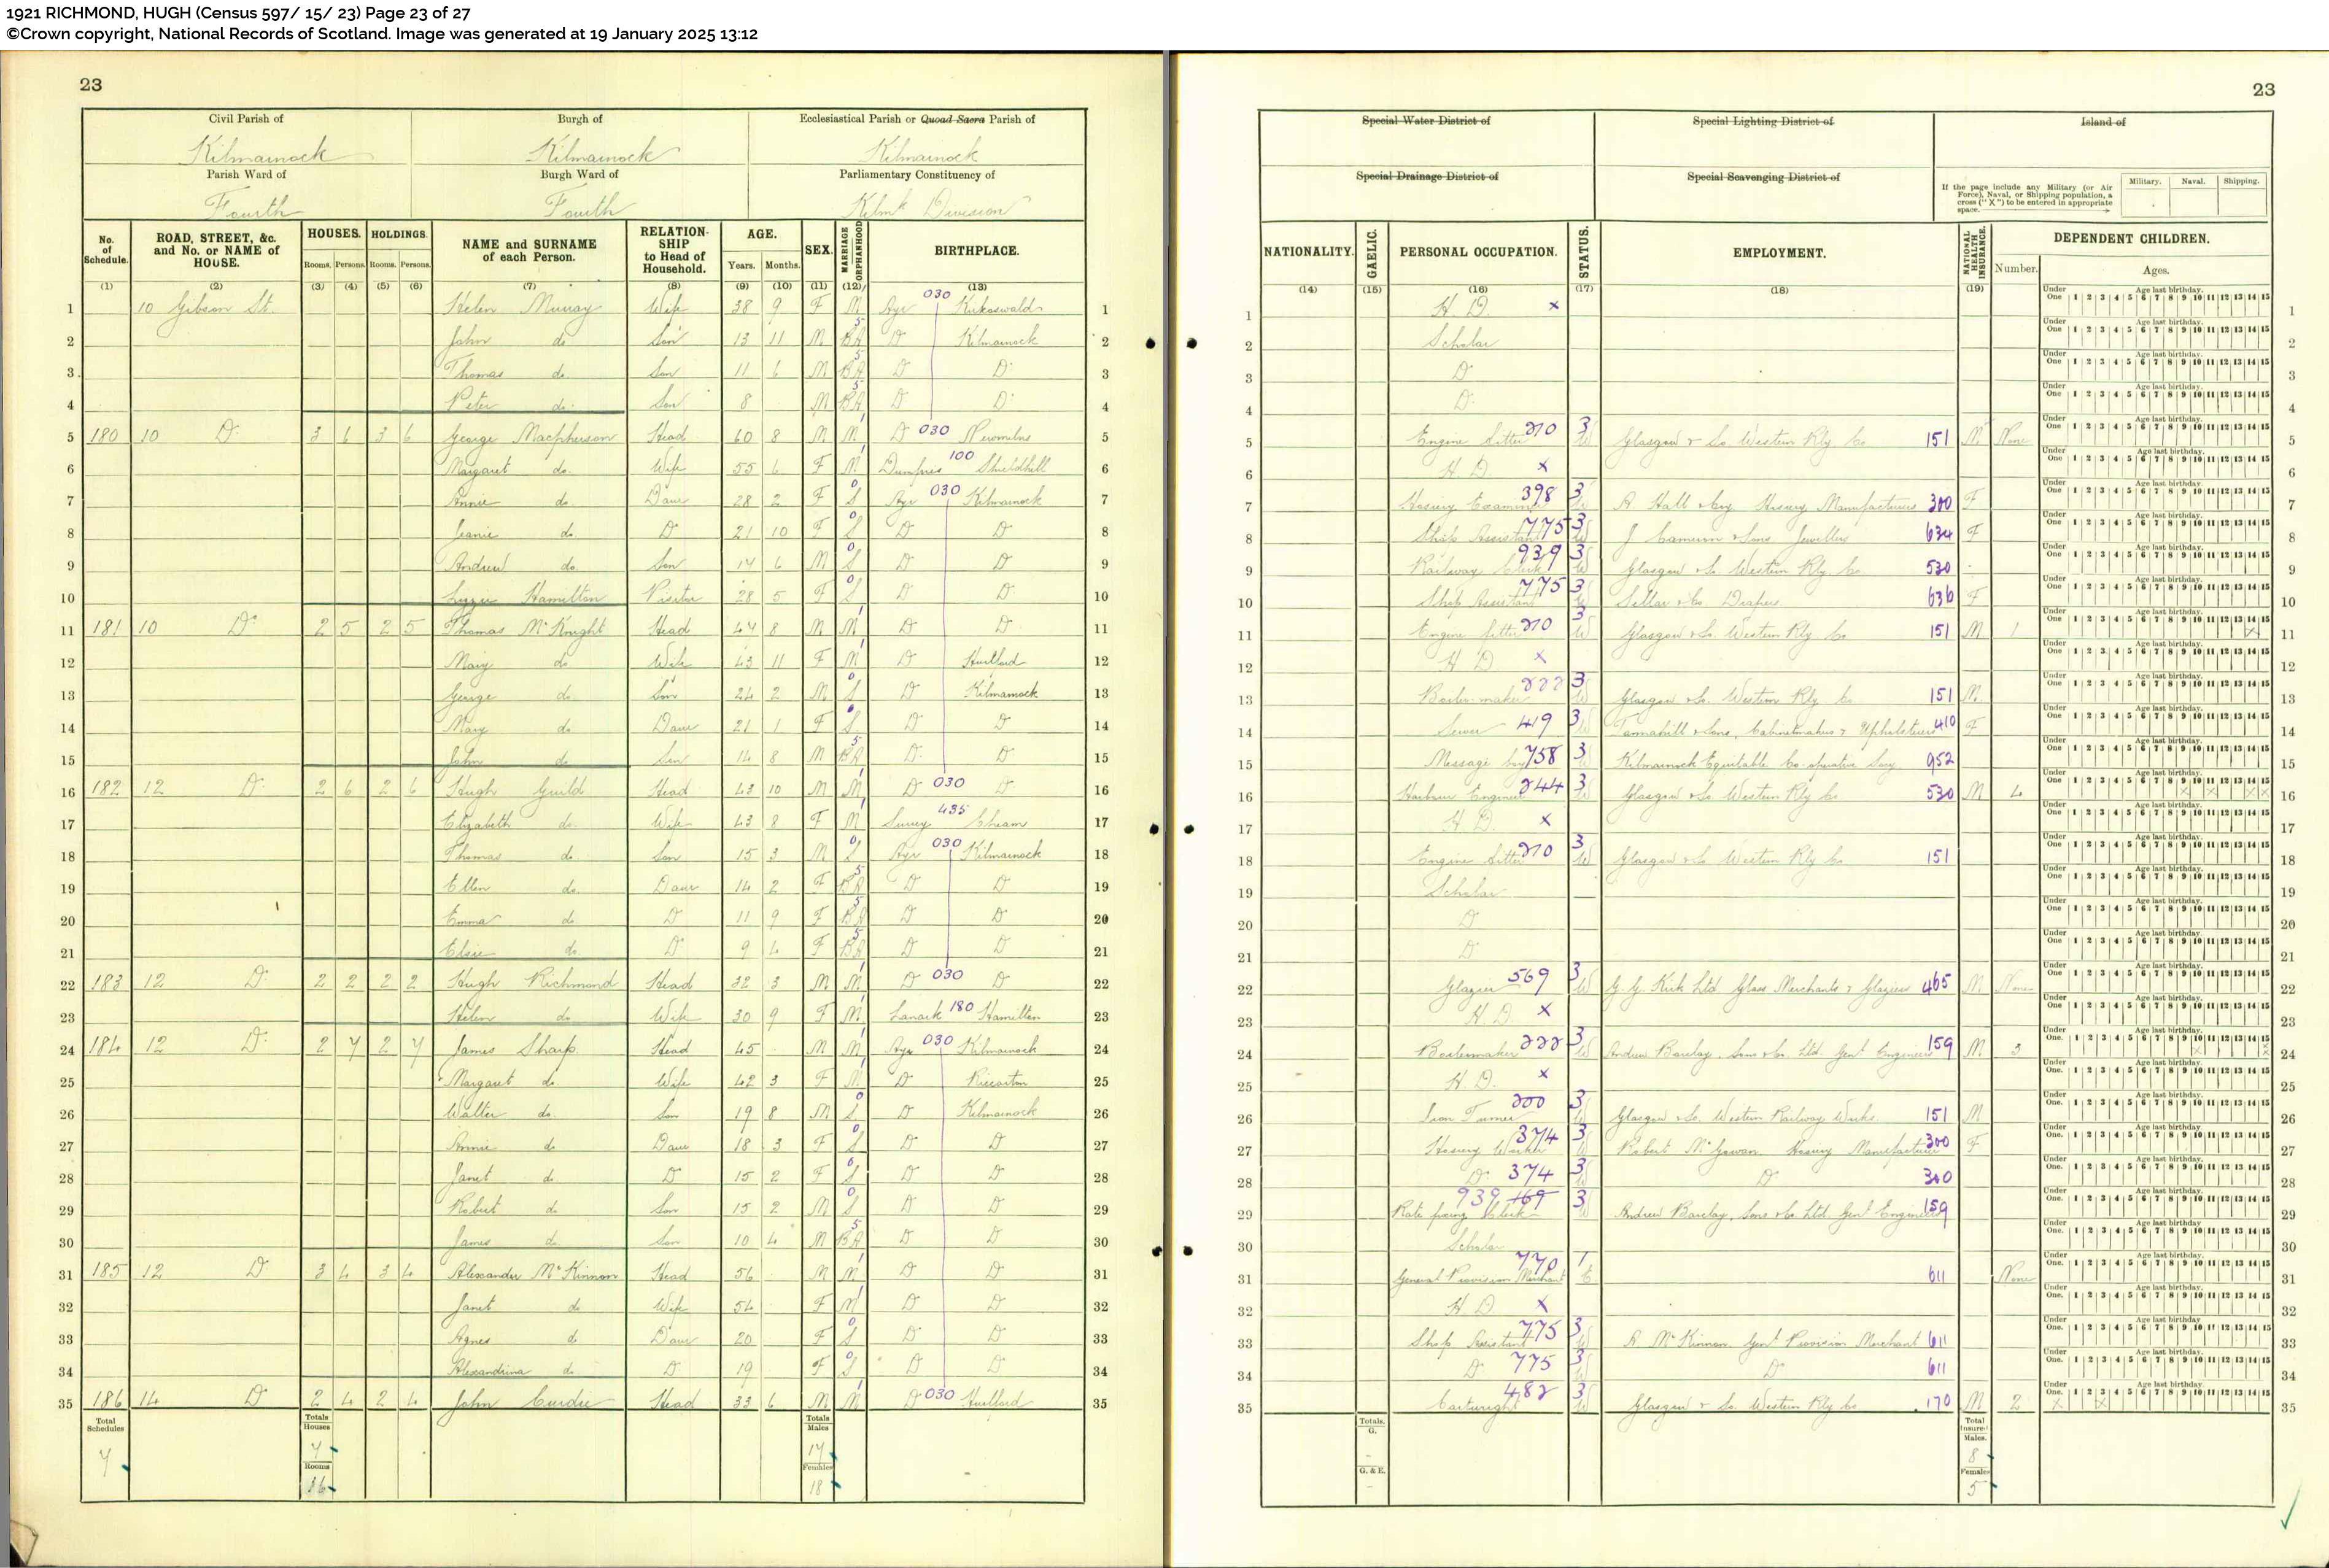 1921 RICHMOND, HUGH (Census 597/ 15/ 23) Page 23 of 27
©Crown copyright, National Records of Scotland. Image was generated at 19 January 2025 13:12
23
Civil Parish of Burgh of Ecclesiastical Parish or Quoad Sacra Parish of
Kilmarnock Kilmarnock Kilmarnock
Parish Ward of Burgh Ward of Parliamentary Constituency of
Fourth Fourth Kilmk Division
No. of Schedule. ROAD, STREET, &c. and No. or NAME of HOUSE. HOUSES. HOLDINGS. NAME and SURNAME of each Person. RELATION-SHIP to Head of Household. AGE. SEX. MARRIAGE ORPHANHOOD BIRTHPLACE.
Rooms. Persons. Rooms. Persons. Years. Months.
(1) (2) (3) (4) (5) (6) (7) (8) (9) (10) (11) (12) (13)
1 10 Gibson St. Helen Murray Wife 38 9 F M Ayr 030 Kirkoswald 1
2 John do Son 13 11 M BA 5 D Kilmarnock 2
3 Thomas do Son 11 6 M BA 5 D D 3
4 Peter do Son 8 M BA 5 D D 4
5 180 10 D 3 6 3 6 George Macpherson Head 60 8 M M 1 D 030 Newmilns 5
6 Margaret do Wife 55 6 F M 1 Dumfries 100 Shieldhill 6
7 Annie do Daur 28 2 F S 0 Ayr 030 Kilmarnock 7
8 Jeanie do D 21 10 F S 0 D D 8
9 Andrew do Son 14 6 M S 0 D D 9
10 Lizzie Hamilton Visitor 28 5 F S 0 D D 10
11 181 10 D 2 5 2 5 Thomas McKnight Head 44 8 M M 1 D D 11
12 Mary do Wife 43 11 F M 1 D Hurlford 12
13 George do Son 24 2 M S 0 D Kilmarnock 13
14 Mary do Daur 21 1 F S 0 D D 14
15 John do Son 14 8 M BA 5 D D 15
16 182 12 D 2 6 2 6 Hugh Guild Head 43 10 M M 1 D 030 D 16
17 Elizabeth do Wife 43 8 F M 1 Surrey 435 Cheam 17
18 Thomas do Son 15 3 M S 0 Ayr 030 Kilmarnock 18
19 Ellen do Daur 14 2 F BA 5 D D 19
20 Emma do D 11 9 F BA 5 D D 20
21 Elsie do D 9 4 F BA 5 D D 21
22 183 12 D 2 2 2 2 Hugh Richmond Head 32 3 M M 1 D 030 D 22
23 Helen do Wife 30 9 F M 1 Lanark 180 Hamilton 23
24 184 12 D 2 7 2 7 James Sharp Head 45 M M 1 Ayr 030 Kilmarnock 24
25 Margaret do Wife 42 3 F M 1 D Riccarton 25
26 Walter do Son 19 8 M S 0 D Kilmarnock 26
27 Annie do Daur 18 3 F S 0 D D 27
28 Janet do D 15 2 F S 0 D D 28
29 Robert do Son 15 2 M S 0 D D 29
30 James do Son 10 4 M BA 5 D D 30
31 185 12 D 3 4 3 4 Alexander McKinnon Head 56 M M 1 D D 31
32 Janet do Wife 54 F M 1 D D 32
33 Agnes do Daur 20 F S 0 D D 33
34 Alexandrina do D 19 F S 0 D D 34
35 186 14 D 2 4 2 4 John Curdie Head 33 6 M M 1 D 030 Hurlford 35
Total Schedules 7
Totals Houses 7
Rooms 16
Totals Males 17
Females 18
23
Special Water District of Special Lighting District of Island of
Special Drainage District of Special Scavenging District of
If the page include any Military (or Air Force), Naval, or Shipping population, a cross ("X") to be entered in appropriate space.
Military. Naval. Shipping.
NATIONALITY. GAELIC. PERSONAL OCCUPATION. STATUS. EMPLOYMENT. NATIONAL HEALTH INSURANCE. DEPENDENT CHILDREN.
Number. Ages.
(14) (15) (16) (17) (18) (19)
Under One Age last birthday. 1 2 3 4 5 6 7 8 9 10 11 12 13 14 15
1 H. D. x 1
2 Scholar 2
3 D 3
4 D 4
5 Engine fitter 270 3 W Glasgow & So. Western Rly Co 151 M None 5
6 H. D. x 6
7 Hosiery Examiner 398 3 W R. Hall Hosiery Manufacturers 300 F 7
8 Shop Assistant 775 3 W J Cameron & Sons Jewellers 634 F 8
9 Railway Clerk 939 3 W Glasgow & So. Western Rly Co 530 9
10 Shop Assistant 775 3 W Sellar & Co. Drapers 636 F 10
11 Engine fitter 270 3 W Glasgow & So. Western Rly Co 151 M 1 11
12 H D x 12
13 Boiler maker 222 3 W Glasgow & So. Western Rly Co 151 M 13
14 Sewer 419 3 W Tannahill & Sons, Cabinetmakers & Upholsterers 410 F 14
15 Message boy 758 3 W Kilmarnock Equitable Co-operative Socy 952 15
16 Harbour Engineer 244 3 W Glasgow & So. Western Rly Co 530 M 4 16
17 H D. x 17
18 Engine fitter 270 3 W Glasgow & So. Western Rly Co 151 18
19 Scholar 19
20 D 20
21 D 21
22 Glazier 569 3 W G. G. Kirk Ltd Glass Merchants & Glaziers 465 M None 22
23 H. D. x 23
24 Boilermaker 222 3 W Andrew Barclay, Sons & Co. Ltd. Genl Engineers 159 M 3 24
25 H. D. x 25
26 Iron Turner 200 3 W Glasgow & So. Western Railway Works 151 M 26
27 Hosiery Worker 374 3 W Robert McGowan. Hosiery Manufacturer 300 F 27
28 D 374 3 W D 300 28
29 Rate fixing Clerk 939 169 3 W Andrew Barclay, Sons & Co. Ltd. Genl Engineers 159 29
30 Scholar 30
31 General Provision Merchant 770 1 E 611 None 31
32 H D x 32
33 Shop Assistant 775 3 W A. McKinnon Genl Provision Merchant 611 33
34 D 775 3 W D 611 34
35 Cartwright 482 3 W Glasgow & So. Western Rly Co 170 M 2 35
Totals. G. -
G. & E. -
Total Insured Males. 8
Females 5